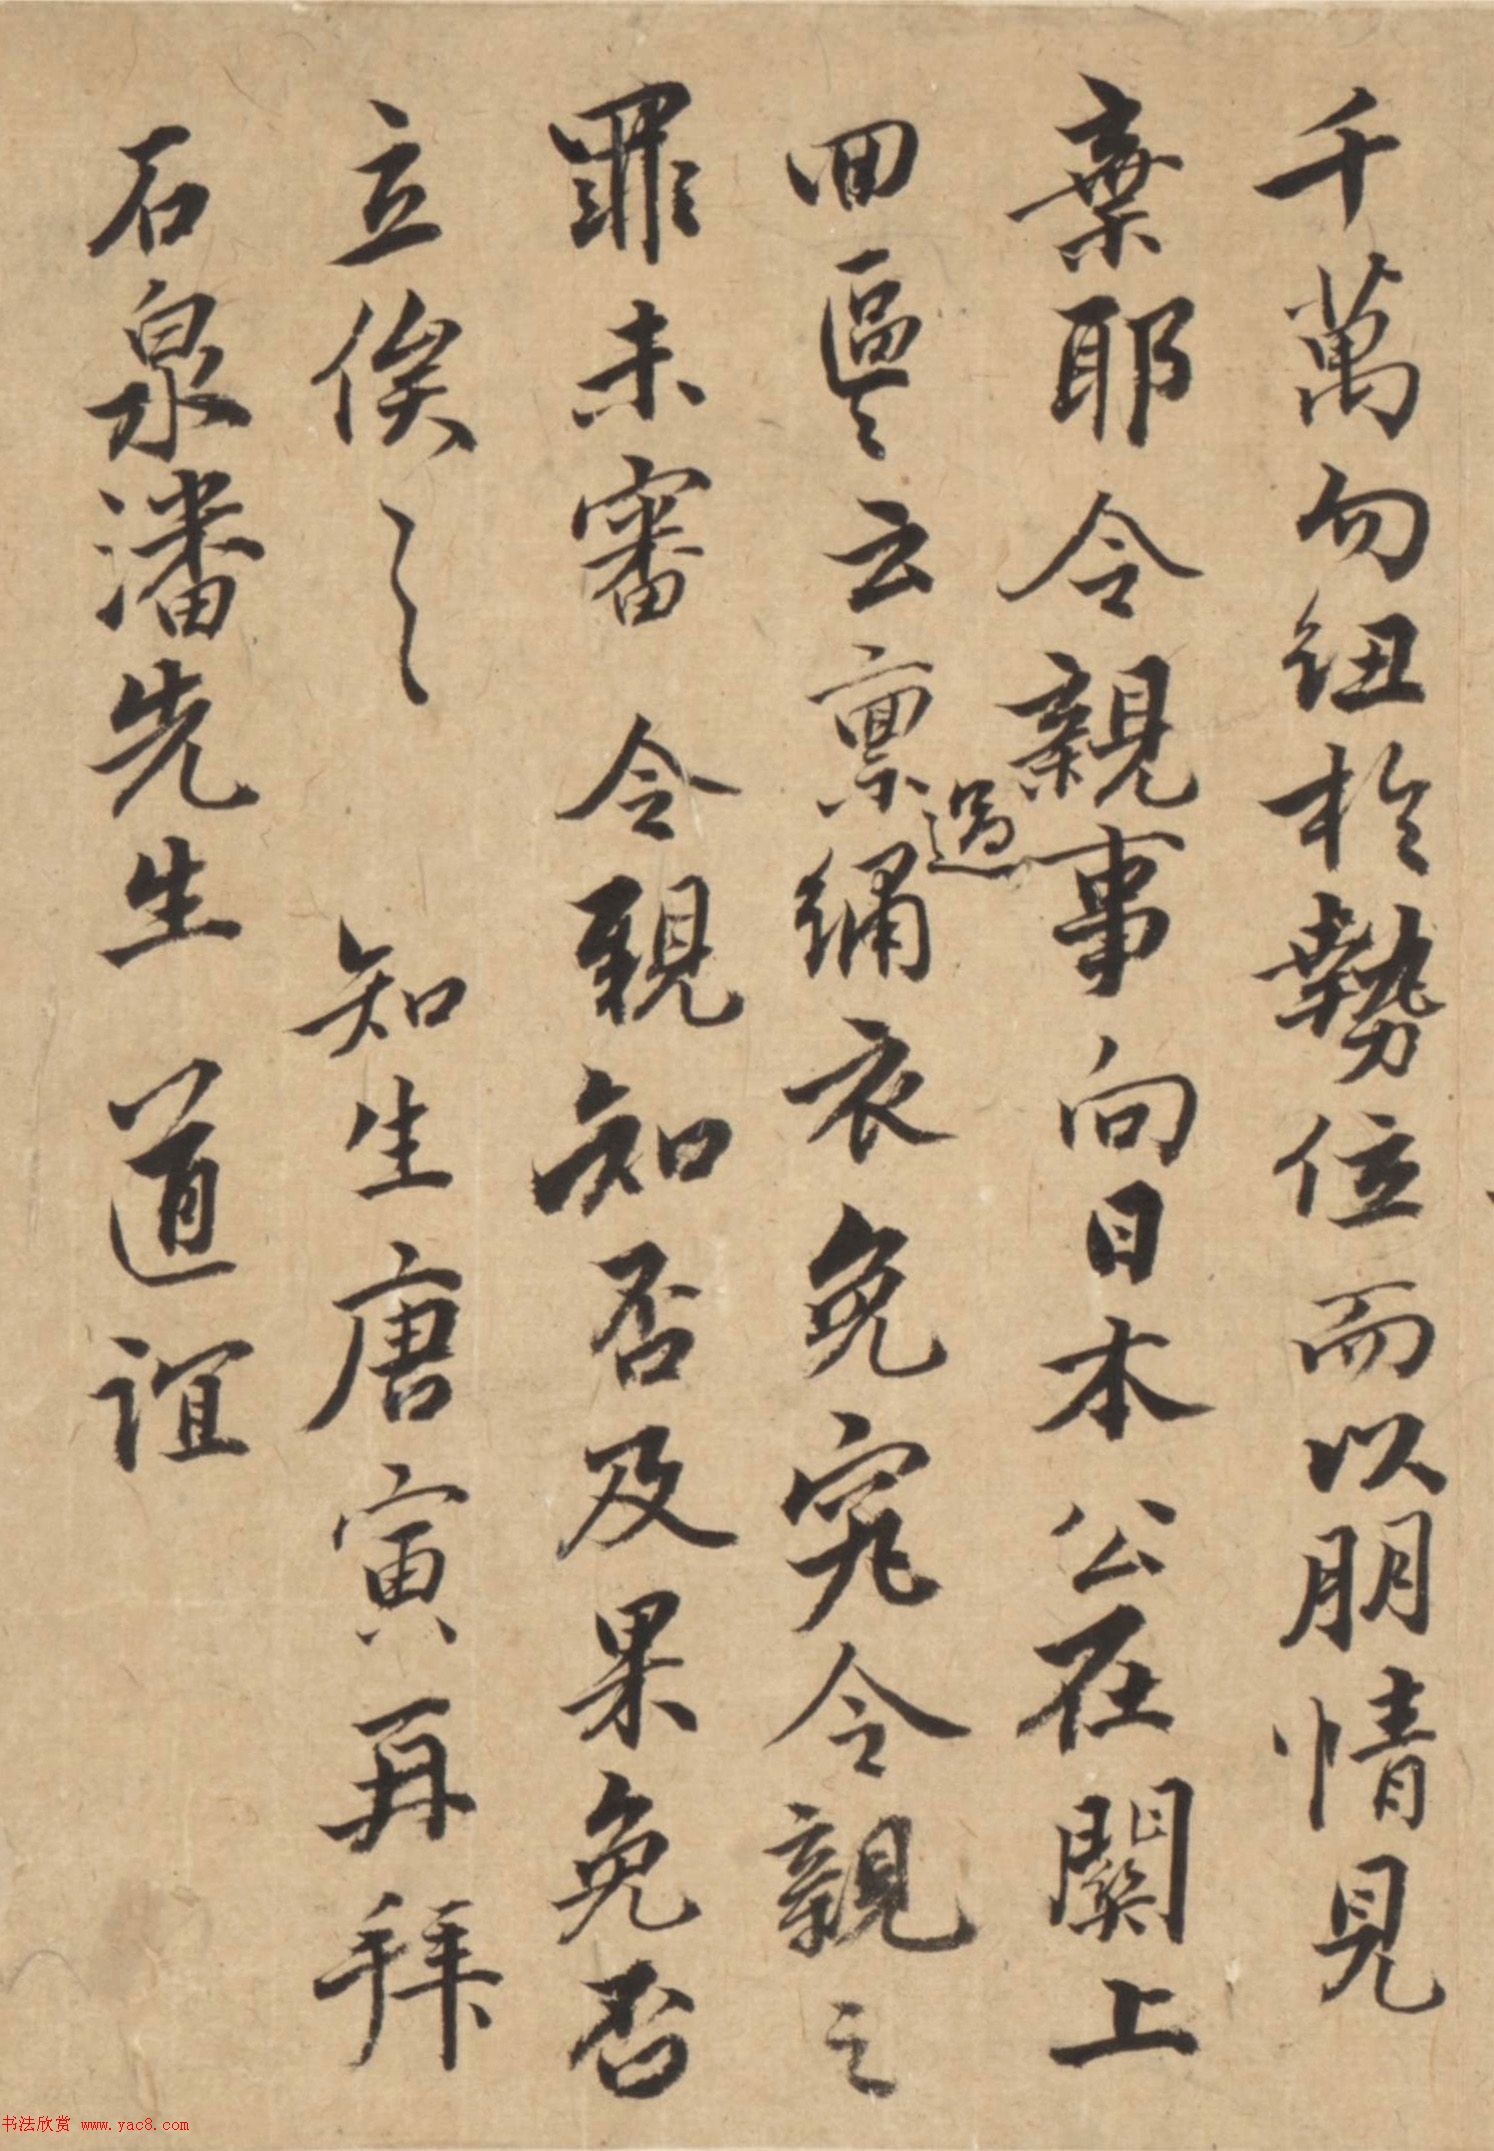 千萬勿紐於勢位而以朋情見
棄耶令親事向日本公在闕上
回區々云稟過繡衣免究令親之
罪未審 令親知否及果免否
立俟々々 知生唐寅再拜
石泉潘先生 道誼
书法欣赏 www.yac8.com